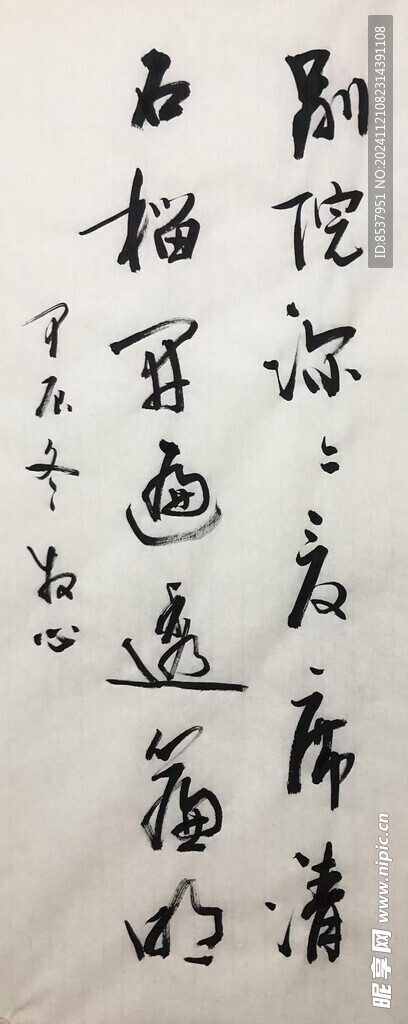 别院深〻夏席清
石榴開遍透簾明
甲辰冬 牧心
ID:8537951 NO:20241121082314391108
昵享网 www.nipic.cn